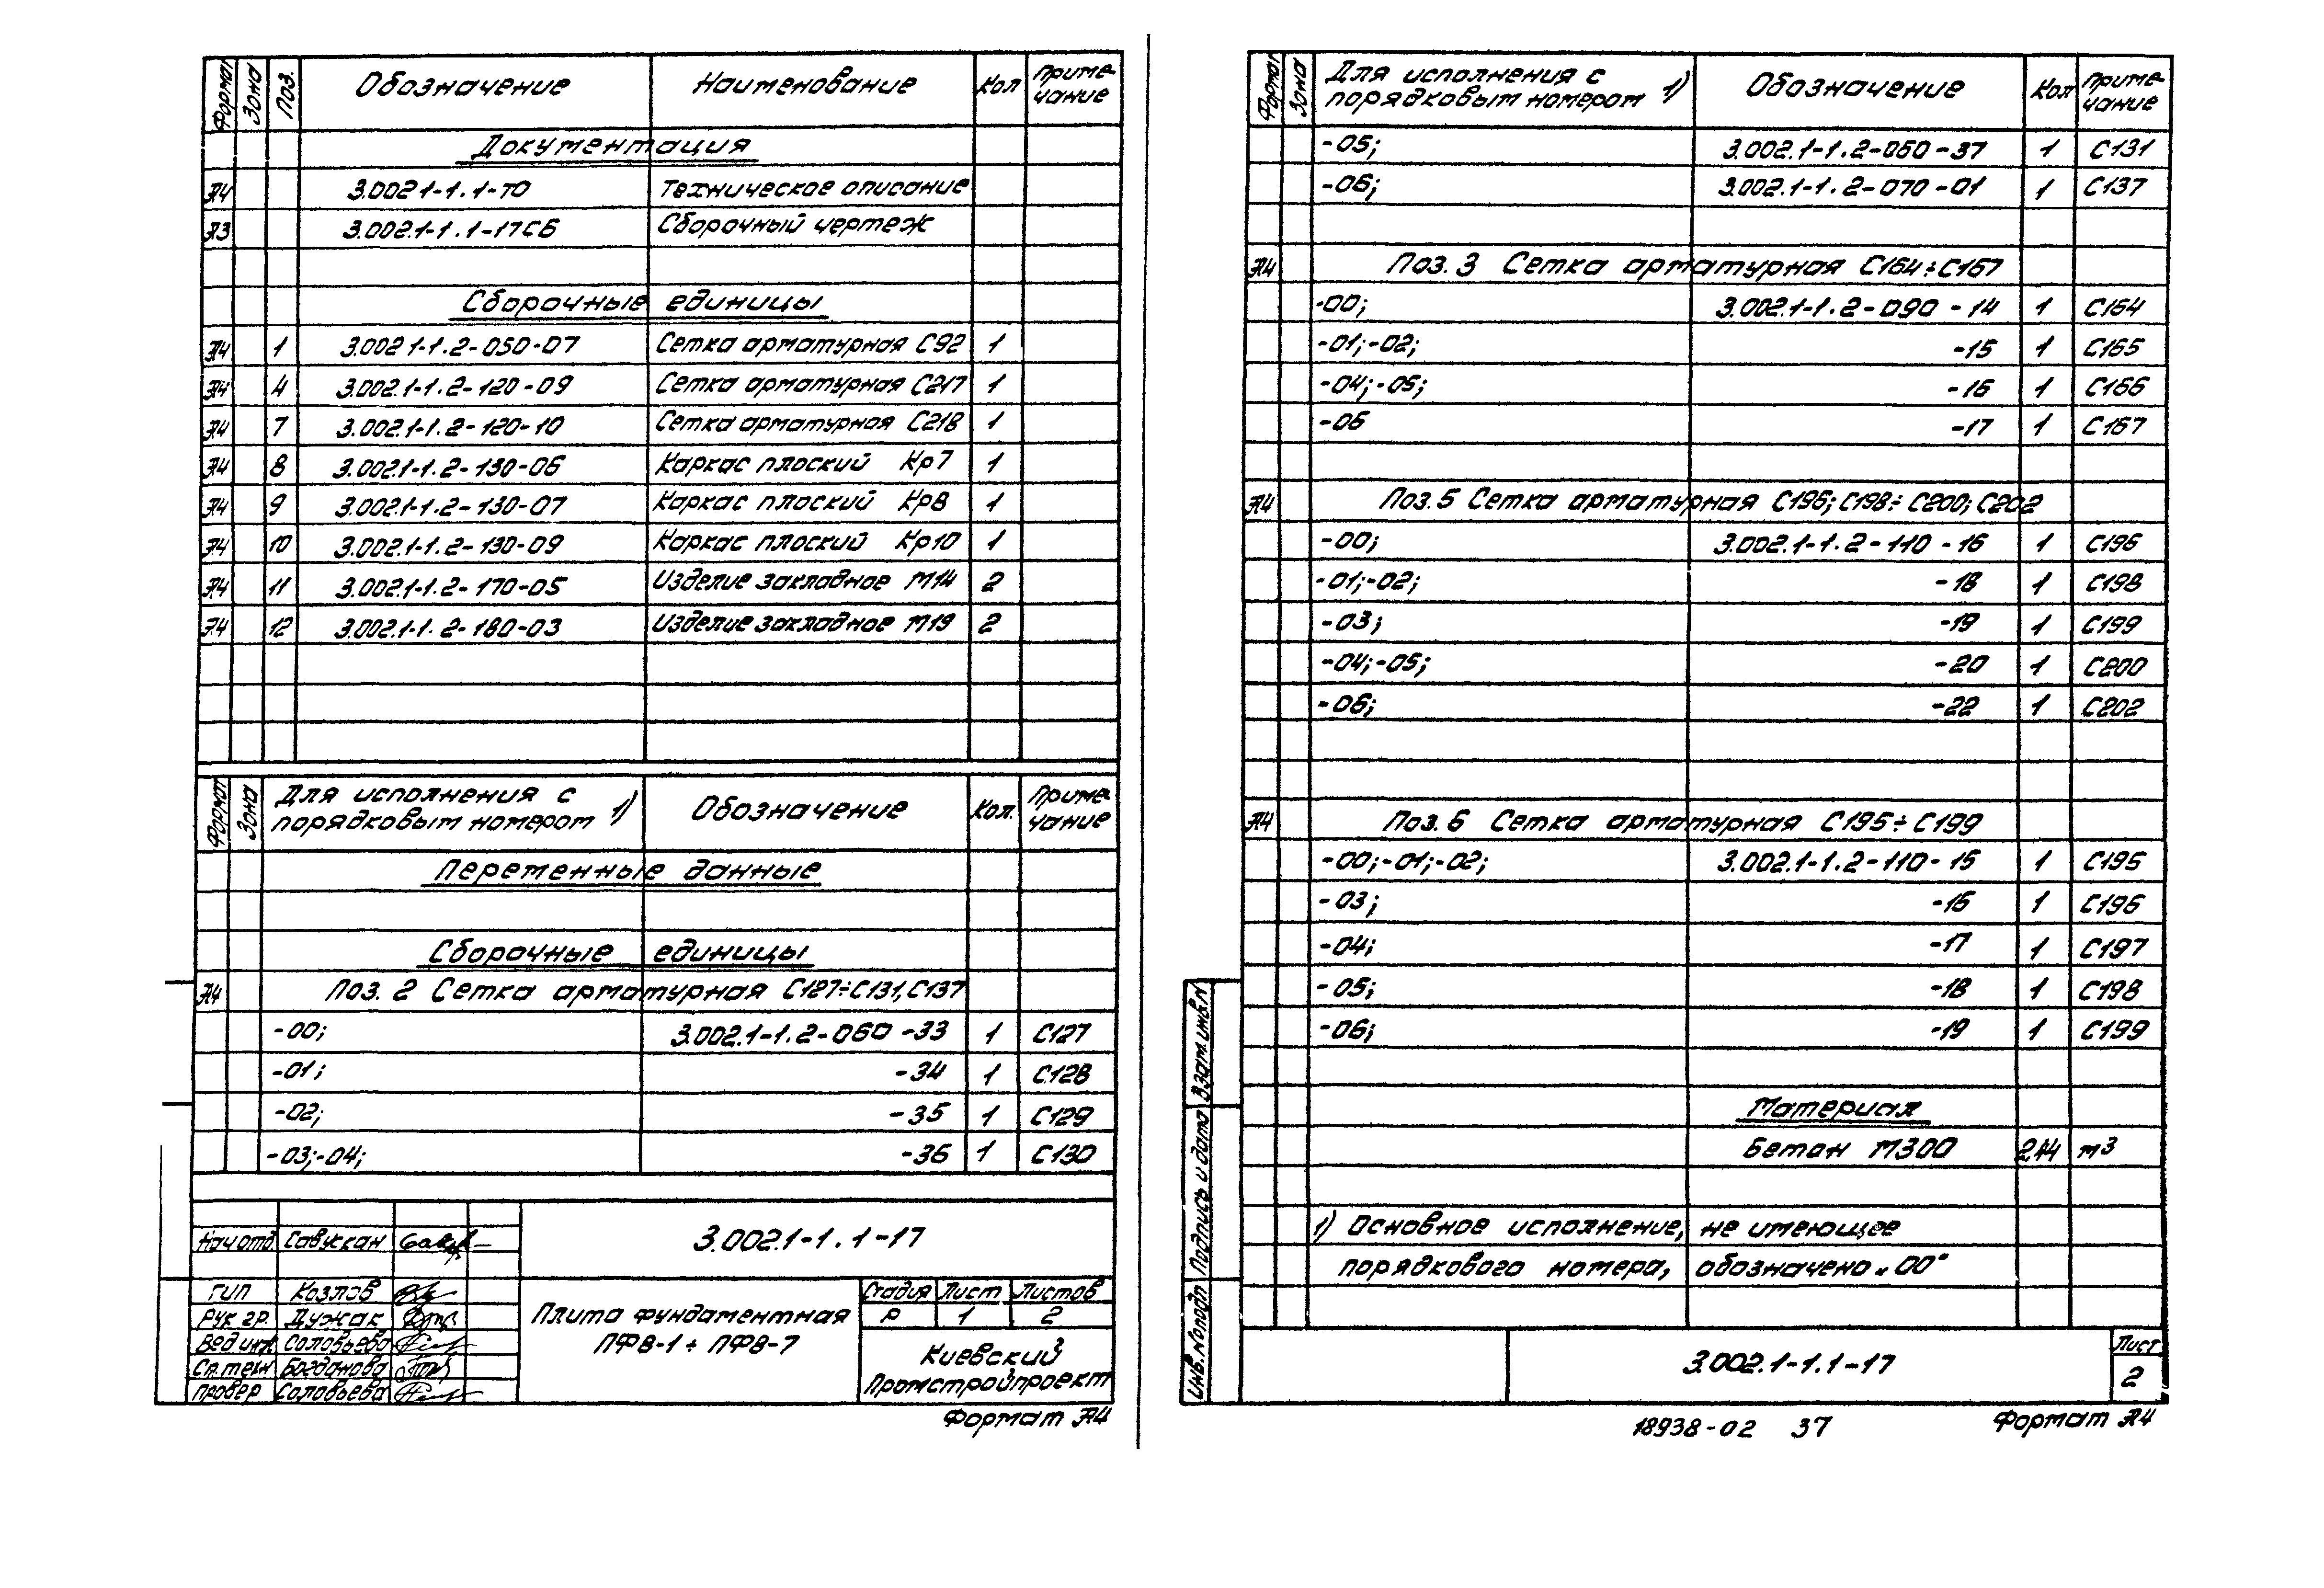 Формат Зона Поз. Обозначение Наименование Кол Приме-чание
Документация
А4 3.002.1-1.1-ТО Техническое описание
А3 3.002.1-1.1-17СБ Сборочный чертеж
Сборочные единицы
А4 1 3.002.1-1.2-050-07 Сетка арматурная С92 1
А4 4 3.002.1-1.2-120-09 Сетка арматурная С217 1
А4 7 3.002.1-1.2-120-10 Сетка арматурная С218 1
А4 8 3.002.1-1.2-130-06 Каркас плоский Кр7 1
А4 9 3.002.1-1.2-130-07 Каркас плоский Кр8 1
А4 10 3.002.1-1.2-130-09 Каркас плоский Кр10 1
А4 11 3.002.1-1.2-170-05 Изделие закладное М14 2
А4 12 3.002.1-1.2-180-03 Изделие закладное М19 2
Формат Зона Для исполнения с порядковым номером 1) Обозначение Кол. Приме-чание
Переменные данные
Сборочные единицы
А4 Поз. 2 Сетка арматурная С127÷С131, С137
-00; 3.002.1-1.2-060-33 1 С127
-01; -34 1 С128
-02; -35 1 С129
-03;-04; -36 1 С130
3.002.1-1.1-17
Нач отд Савускан
ГИП Козлов
Рук гр. Дужак
Вед инж Соловьева
Ст. техн Богданова
Провер Соловьева
Плита фундаментная
ПФ8-1÷ПФ8-7
Стадия Лист Листов
Р 1 2
Киевский
Промстройпроект
Формат А4
Формат Зона Для исполнения с порядковым номером 1) Обозначение Кол Приме-чание
-05; 3.002.1-1.2-060-37 1 С131
-06; 3.002.1-1.2-070-01 1 С137
А4 Поз. 3 Сетка арматурная С164÷С167
-00; 3.002.1-1.2-090-14 1 С164
-01;-02; -15 1 С165
-04;-05; -16 1 С166
-06 -17 1 С167
А4 Поз. 5 Сетка арматурная С196; С198÷С200; С202
-00; 3.002.1-1.2-110-16 1 С196
-01;-02; -18 1 С198
-03; -19 1 С199
-04;-05; -20 1 С200
-06; -22 1 С202
А4 Поз. 6 Сетка арматурная С195÷С199
-00;-01;-02; 3.002.1-1.2-110-15 1 С195
-03; -16 1 С196
-04; -17 1 С197
-05; -18 1 С198
-06; -19 1 С199
Материал
Бетон М300 2,44 м3
1) Основное исполнение, не имеющее
порядкового номера, обозначено „00"
Инв. № подп Подпись и дата Взам. инв. №
3.002.1-1.1-17
Лист
2
18938-02 37
Формат А4